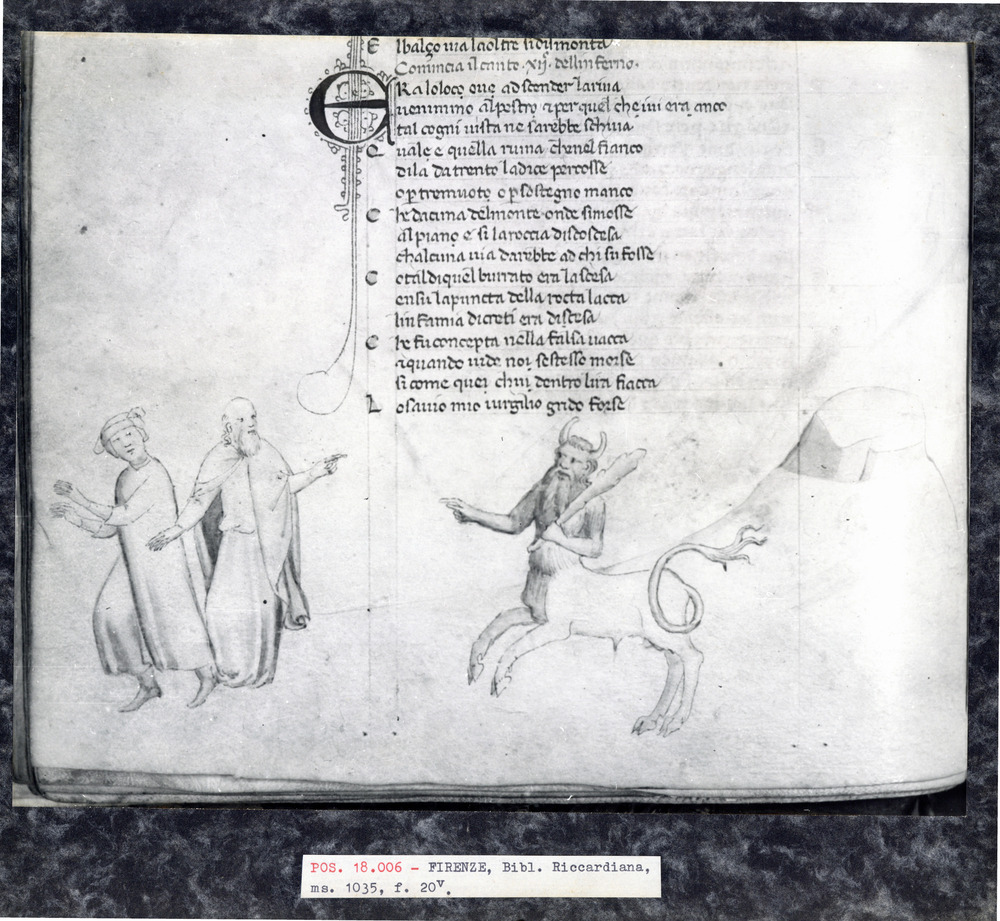 E lbalço uia laoltre sidismonta
Comincia il canto .xij. dellinferno.
ERa loloco oue adscender lariua
uenimmo alpestro ⁊ per quel che iui era anco
tal cogni uista ne sarebbe schiua
Q uale e quella ruina chenel fianco
dila da trento ladice percosse
o p̱ tremuoto o p̱ sostegno manco
C he dacima delmonte onde simosse
alpiano e si laroccia discoscesa
chalcuna uia darebbe ad chi su fosse
C otal diquel burrato era lascesa
ensu lapuncta della rocta lacca
linfamia dicreti era distesa
C he fu concepta nella falsa uacca
⁊quando uide noi sestesso morse
si come quei chui dentro lira fiacca
L osauio mio uirgilio grido forse
POS. 18.006 – FIRENZE, Bibl. Riccardiana,
ms. 1035, f. 20v.